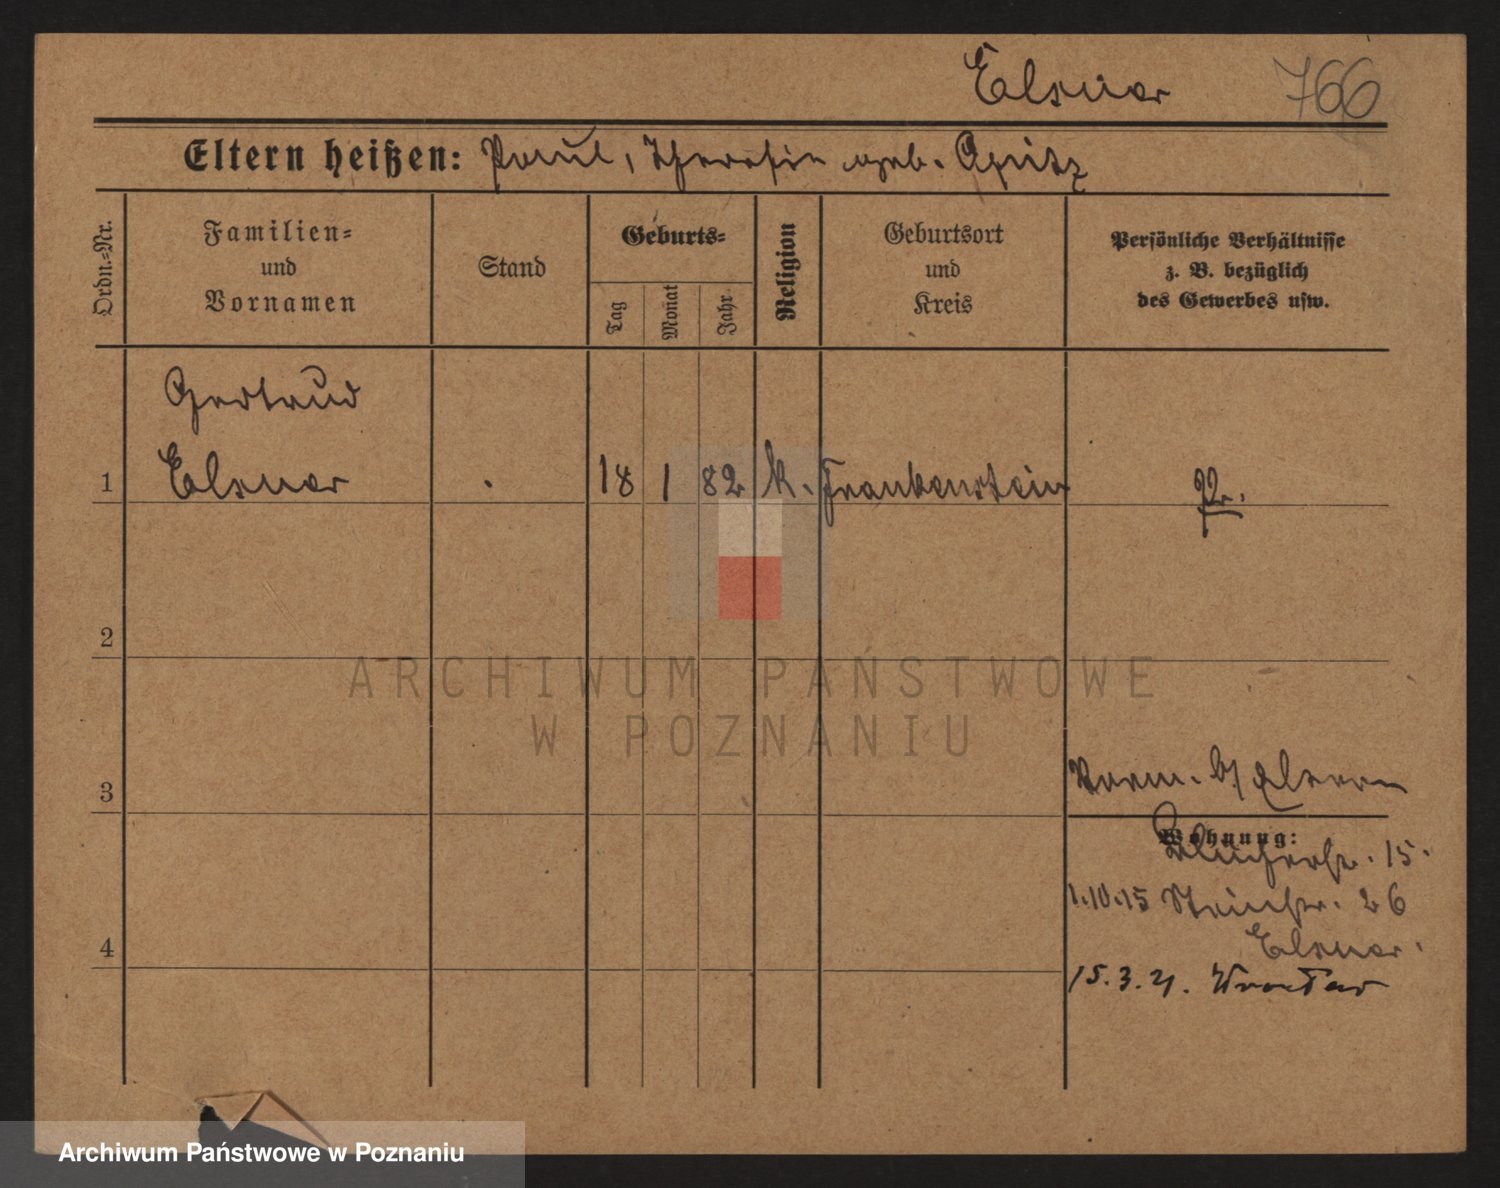 Elsner 766
Eltern heißen: Paul, Theresia geb. Opitz
Ordn.-Nr.
Familien-
und
Vornamen
Stand
Geburts-
Tag
Monat
Jahr
Religion
Geburtsort
und
Kreis
Persönliche Verhältnisse
z. B. bezüglich
des Gewerbes usw.
Gertrud
1 Elsner . 18 1 82 k. Frankenstein
2
3
Wohnung:
Blücherstr. 15.
1.10.15 Steinstr. 26
4
Elsner.
15.3.21.
ARCHIWUM PAŃSTWOWE
W POZNANIU
Archiwum Państwowe w Poznaniu